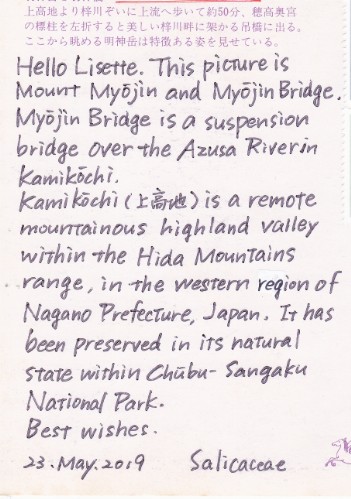 上高地より梓川ぞいに上流へ歩いて約50分、穂高奥宮
の標柱を左折すると美しい梓川畔に架かる吊橋に出る。
ここから眺める明神岳は特徴ある姿を見せている。
Hello Lisette. This picture is
Mount Myōjin and Myōjin Bridge.
Myōjin Bridge is a suspension
bridge over the Azusa River in
Kamikōchi.
Kamikōchi (上高地) is a remote
mountainous highland valley
within the Hida Mountains
range, in the western region of
Nagano Prefecture, Japan. It has
been preserved in its natural
state within Chūbu-Sangaku
National Park.
Best wishes.
23. May. 2019 Salicaceae